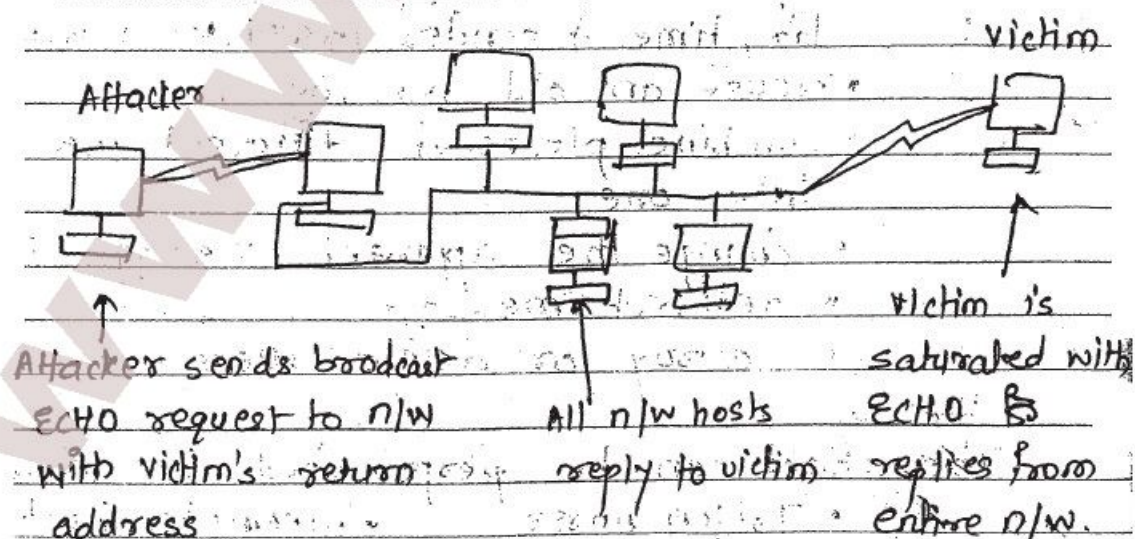 victim
Attacker
Attacker sends brodcast
ECHO request to n/w
with victim's return
address
All n/w hosts
reply to victim
victim is
saturated with
ECHO
replies from
entire n/w.
www